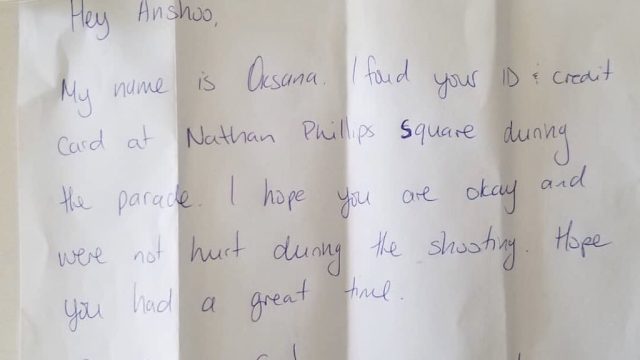 Hey Anshoo,
My name is Oksana. I foud your ID & credit
Card at Nathan Phillips Square during
the parade. I hope you are okay and
were not hurt during the shooting. Hope
you had a great time.